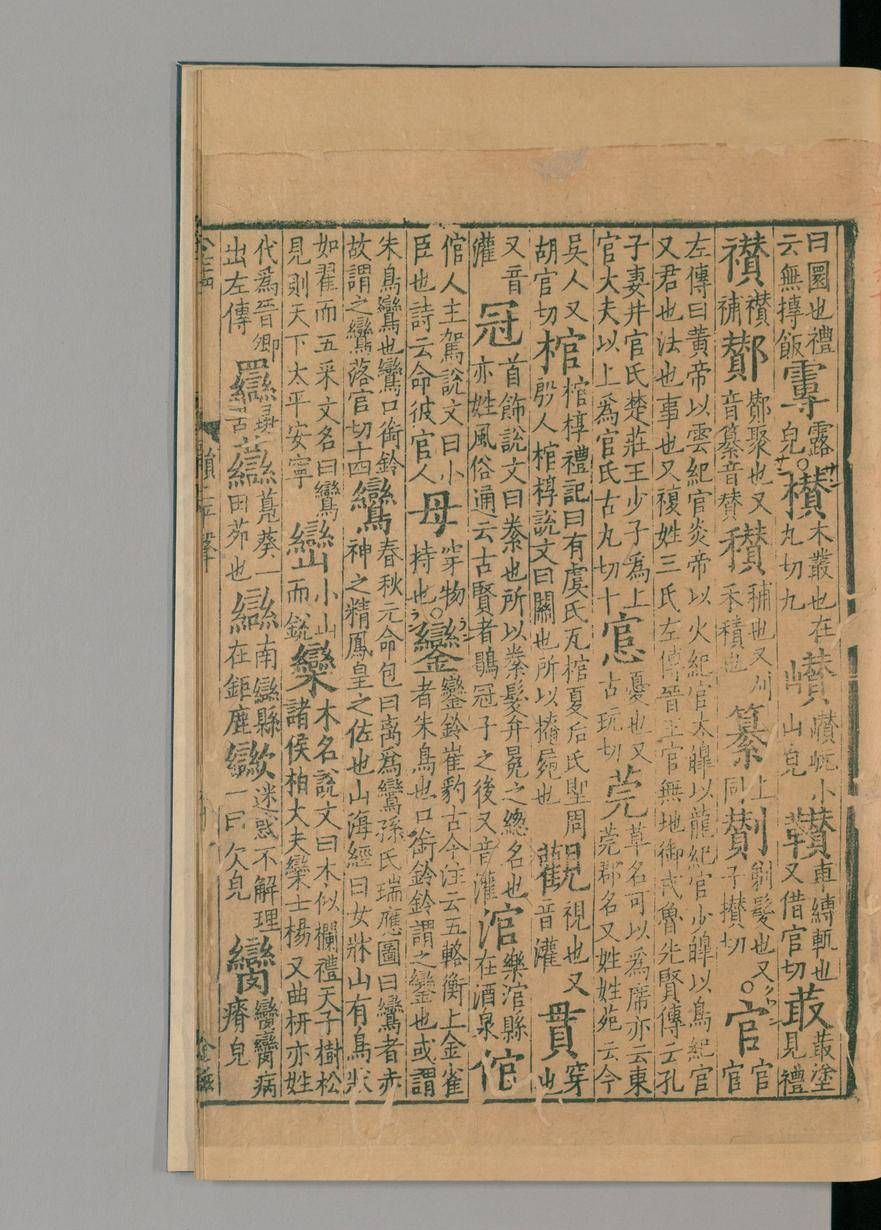 曰圜也禮云無摶飯䨴露皃。欑木叢也在丸切九巑巑岏小山皃車縛軛也又借官切菆菆塗見禮
襸襸補酇酇聚也又音纂音賛穳穧也又刈禾積也纂上同劗剃髮也又子攅切。官官宦
左傳曰黃帝以雲紀官炎帝以火紀官太皥以龍紀官少皥以鳥紀官又君也法也事也又複姓三氏左傳晉王官無地御戎魯先賢傳云孔
子妻幷官氏楚莊王少子爲上官大夫以上爲官氏古丸切十悹憂也又古玩切莞草名可以爲席亦云東莞郡名又姓姓苑云今
吳人又胡官切棺棺椁禮記曰有虞氏瓦棺夏后氏堲周殷人棺椁說文曰關也所以掩屍也觀視也又音灌貫穿也
又音灌冠首飾說文曰絭也所以絭髮弁冕之總名也亦姓風俗通云古賢者鶡冠子之後又音灌涫樂涫縣在酒泉倌
倌人主駕說文曰小臣也詩云命彼官人毌穿物持也。鑾鑾鈴崔豹古今注云五輅衡上金雀者朱鳥也口銜鈴鈴謂之鑾也或謂
朱鳥鸞也鸞口銜鈴故謂之鸞落官切十四鸞春秋元命包曰离爲鸞孫氏瑞應圖曰鸞者赤神之精鳳皇之佐也山海經曰女牀山有鳥狀
如翟而五采文名曰鸞見則天下太平安寧巒小山而銳欒木名說文曰木似欄禮天子樹松諸侯柏大夫欒士楊又曲枅亦姓
代爲晉卿出左傳羉彘罟虊葵一曰茆也䜌南䜌縣在鉅鹿迷惑不解理一曰欠皃病瘠皃